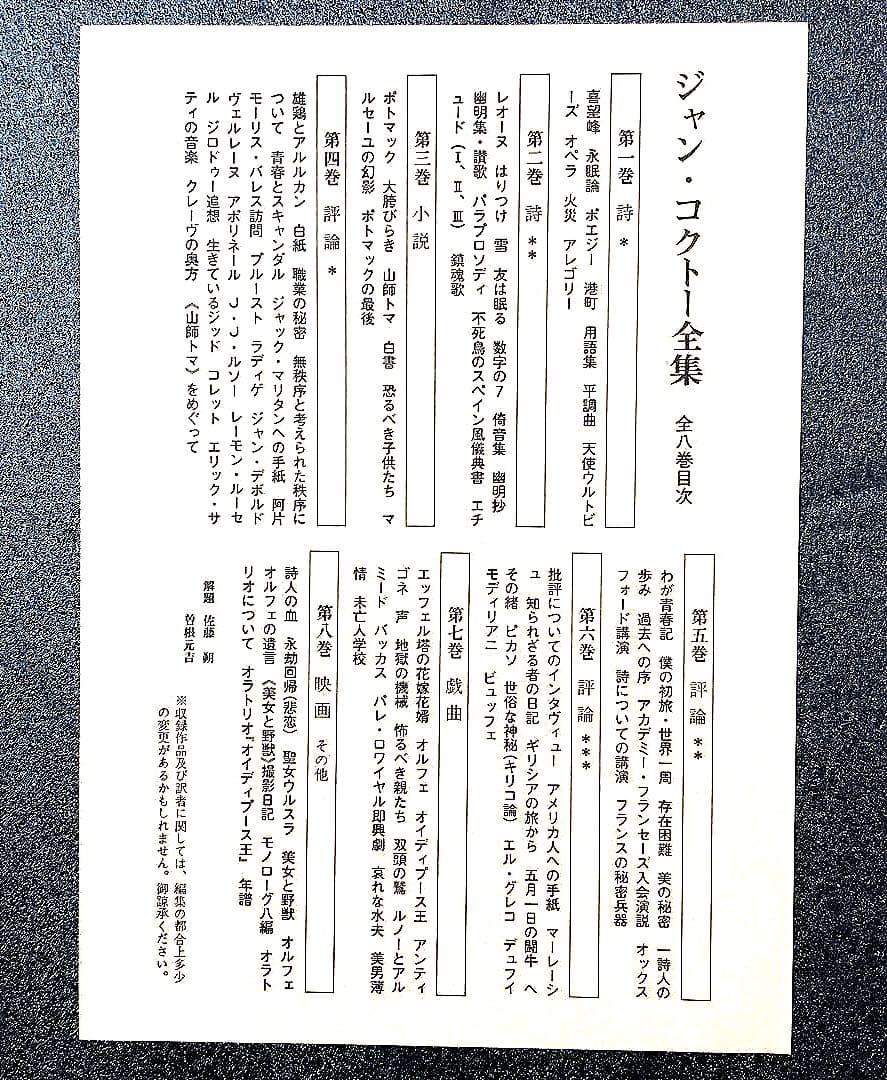 ジャン・コクトー全集 全八巻目次
第一巻 詩 *
喜望峰 永眠論 ポエジー 港町 用語集 平調曲 天使ウルトビ
ーズ オペラ 火災 アレゴリー
第二巻 詩 **
レオーヌ はりつけ 雪 友は眠る 数字の7 倚音集 幽明抄
幽明集・讃歌 パラプロソディ 不死鳥のスペイン風儀典書 エチ
ュード(I、II、III) 鎮魂歌
第三巻 小説
ポトマック 大胯びらき 山師トマ 白書 恐るべき子供たち マ
ルセーユの幻影 ポトマックの最後
第四巻 評論 *
雄鶏とアルルカン 白紙 職業の秘密 無秩序と考えられた秩序に
ついて 青春とスキャンダル ジャック・マリタンへの手紙 阿片
モーリス・バレス訪問 プルースト ラディゲ ジャン・デボルド
ヴェルレーヌ アポリネール J・J・ルソー レーモン・ルーセ
ル ジロドゥー追想 生きているジッド コレット エリック・サ
ティの音楽 クレーヴの奥方 《山師トマ》をめぐって
第五巻 評論 **
わが青春記 僕の初旅・世界一周 存在困難 美の秘密 一詩人の
歩み 過去への序 アカデミー・フランセーズ入会演説 オックス
フォード講演 詩についての講演 フランスの秘密兵器
第六巻 評論 ***
批評についてのインタヴィュー アメリカ人への手紙 マーレーシ
ュ 知られざる者の日記 ギリシアの旅から 五月一日の闘牛 へ
その緒 ピカソ 世俗な神秘(キリコ論) エル・グレコ デュフイ
モディリアニ ビュッフェ
第七巻 戯曲
エッフェル塔の花嫁花婿 オルフェ オイディプース王 アンティ
ゴネ 声 地獄の機械 怖るべき親たち 双頭の鷲 ルノーとアル
ミード バッカス パレ・ロワイヤル即興劇 哀れな水夫 美男薄
情 未亡人学校
第八巻 映画 その他
詩人の血 永劫回帰(悲恋) 聖女ウルスラ 美女と野獣 オルフェ
オルフェの遺言 《美女と野獣》撮影日記 モノローグ八編 オラト
リオについて オラトリオ『オイディプース王』 年譜
解題 佐藤 朔
曽根元吉
※収録作品及び訳者に関しては、編集の都合上多少
の変更があるかもしれません。御諒承ください。